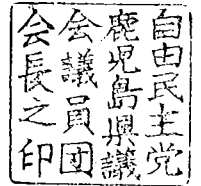 自由民主党
鹿児島県議
会議員団
会長之印